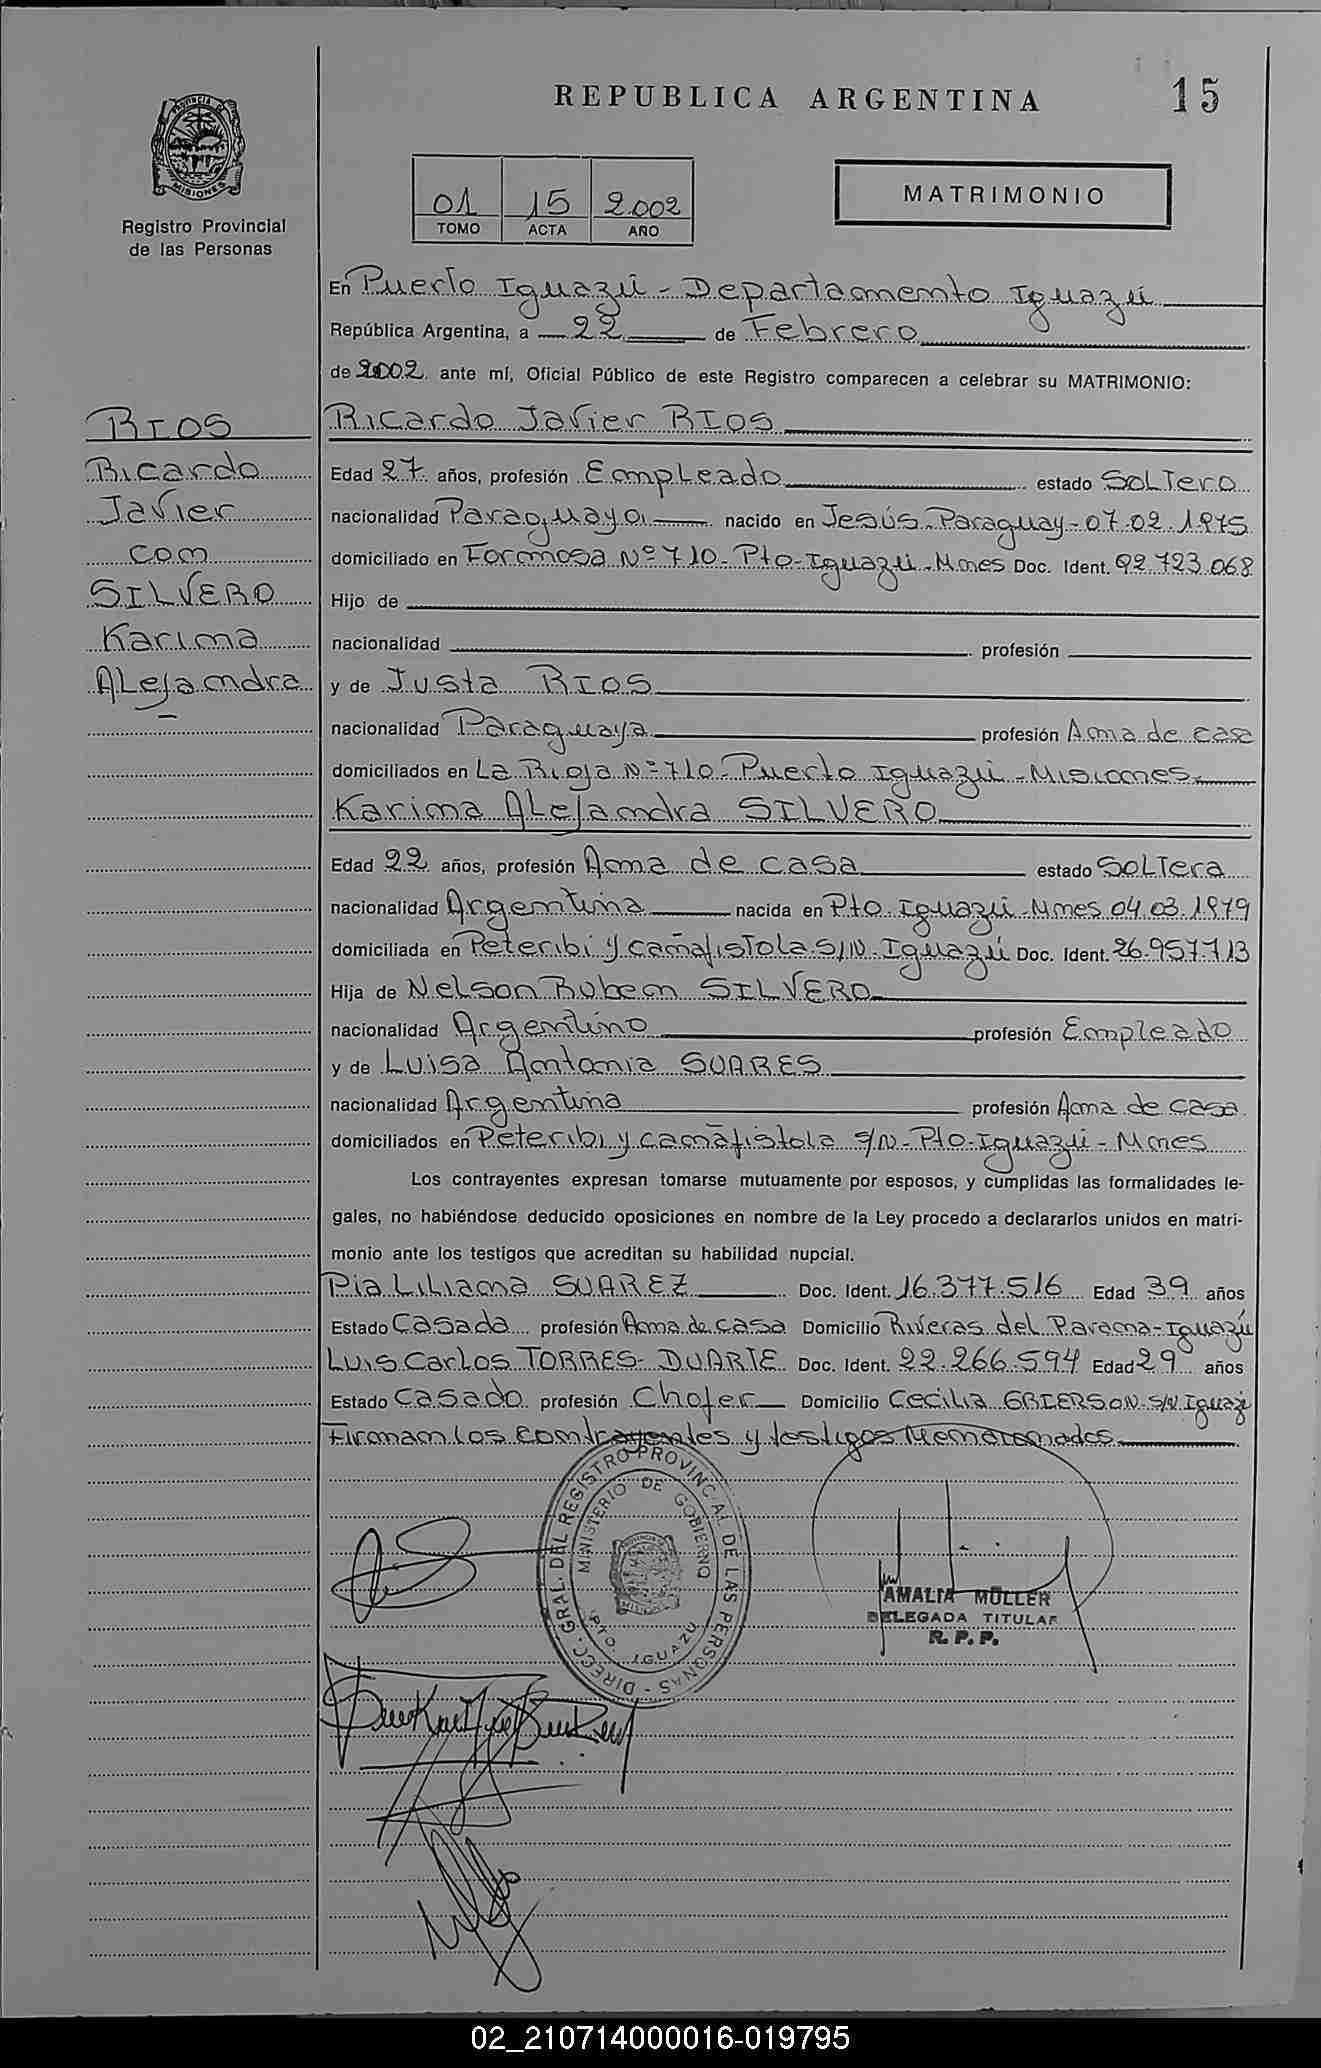 REPUBLICA ARGENTINA
15
PROVINCIA DE
MISIONES
Registro Provincial
de las Personas
01 15 2.002
TOMO ACTA AÑO
MATRIMONIO
En Puerto Iguazú - Departamento Iguazú
República Argentina, a 22 de Febrero
de 2002 ante mí, Oficial Público de este Registro comparecen a celebrar su MATRIMONIO:
RIOS
Ricardo
Javier
con
SILVERO
Karina
Alejandra
Ricardo Javier RIOS
Edad 27 años, profesión Empleado estado Soltero
nacionalidad Paraguaya nacido en Jesús-Paraguay-07.02.1975
domiciliado en Formosa Nº 710-Pto-Iguazú-Mnes Doc. Ident. 92.723.068
Hijo de
nacionalidad profesión
y de Justa RIOS
nacionalidad Paraguaya profesión Ama de casa
domiciliados en La Rioja Nº 710-Puerto Iguazú-Misiones
Karina Alejandra SILVERO
Edad 22 años, profesión Ama de casa estado Soltera
nacionalidad Argentina nacida en Pto. Iguazú-Mnes 04.03.1979
domiciliada en Peteribi y cañafistola S/N. Iguazú Doc. Ident. 26.957.713
Hija de Nelson Ruben SILVERO
nacionalidad Argentino profesión Empleado
y de Luisa Antonia SUARES
nacionalidad Argentina profesión Ama de casa
domiciliados en Peteribi y cañafistola S/N-Pto-Iguazú-Mnes
Los contrayentes expresan tomarse mutuamente por esposos, y cumplidas las formalidades le-
gales, no habiéndose deducido oposiciones en nombre de la Ley procedo a declararlos unidos en matri-
monio ante los testigos que acreditan su habilidad nupcial.
Pia Liliana SUAREZ Doc. Ident. 16.377.516 Edad 39 años
Estado Casada profesión Ama de casa Domicilio Riveras del Parana-Iguazú
Luis Carlos TORRES-DUARTE Doc. Ident. 22.266.594 Edad 29 años
Estado Casado profesión Chofer Domicilio Cecilia GRIERSON S/N. Iguazú
Firman los contrayentes y testigos Mencionados
DIRECC. GRAL. DEL REGISTRO PROVINCIAL DE LAS PERSONAS -
MINISTERIO DE GOBIERNO
PTO. IGUAZU
AMALIA MÜLLER
DELEGADA TITULAR
R. P. P.
02_210714000016-019795